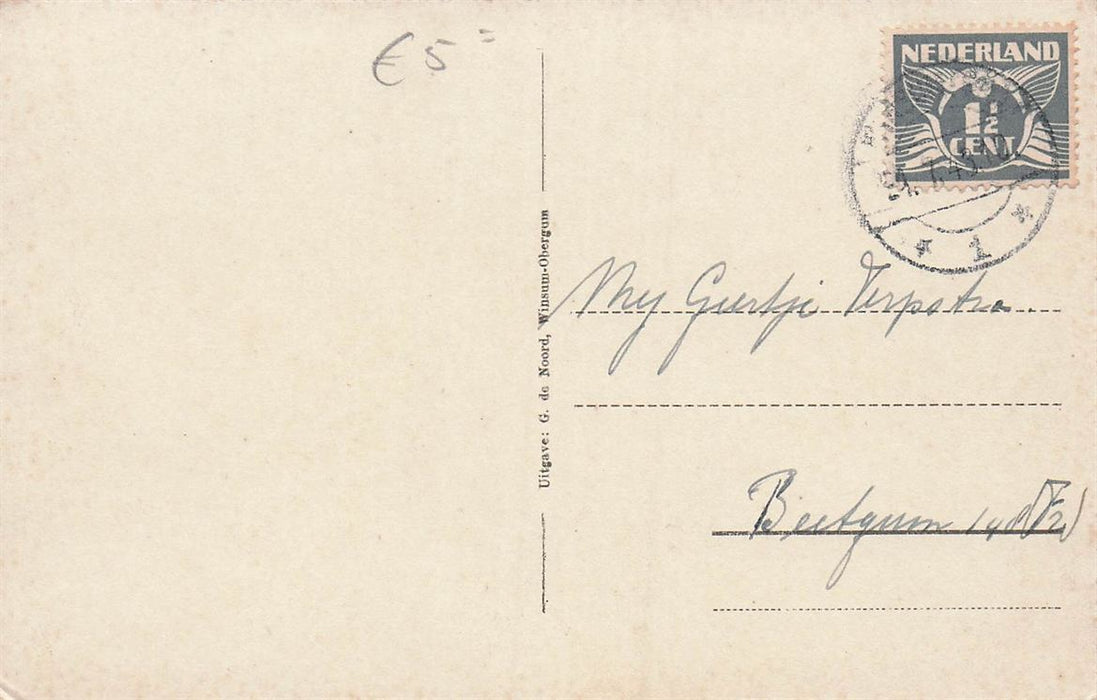 € 5=
NEDERLAND
1½
CENT
Uitgave: G. de Noord, Winsum-Obergum
Mej Geertje Terpstra.
Beetgum
1